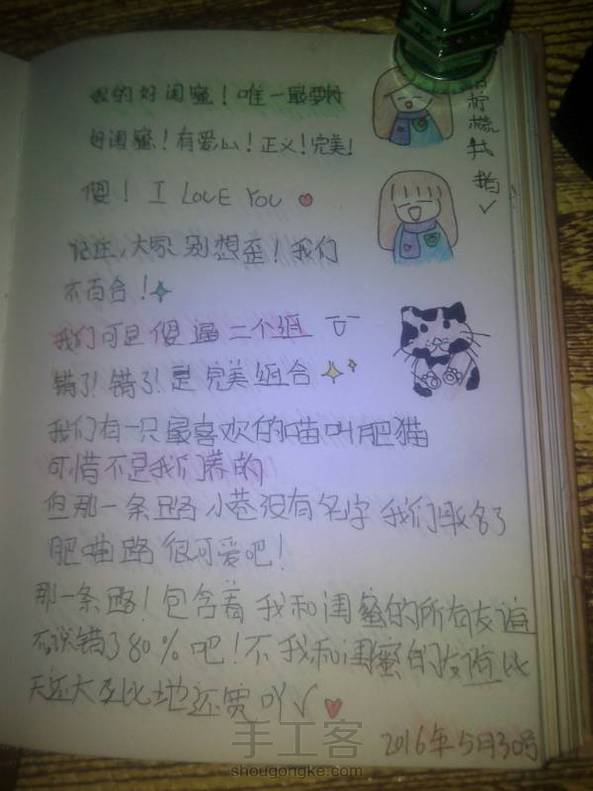 我的好闺蜜！唯一最要好
好闺蜜！有爱心！正义！完美！
傻！I LOVE YOU
记住，大家别想歪！我们
不百合！
我们可是傻逼二个组
错了！错了！是完美组合
我们有一只最喜欢的喵叫肥猫
可惜不是我们养的
但那一条路小巷没有名字我们取名了
肥猫路很可爱吧！
那一条路！包含着我和闺蜜的所有友谊
不说错了80%吧！不我和闺蜜的友谊比
天还大 比地还宽吖√
2016年5月30号
手工客
shougongke.com